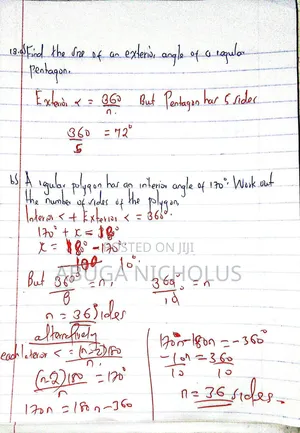 18.a) Find the size of an exterior angle of a regular
pentagon.
Exterior < = 360/n. But Pentagon has 5 sides
360/5 = 72°
b) A regular polygon has an interior angle of 170°. Work out
the number of sides of the polygon.
Interior < + Exterior < = 360°.
170° + x = 180°
x = 180° - 170°
10°
POSTED ON JIJI
ABUGA NICHOLUS
But 360°/θ = n
360°/10 = n
n = 36 sides
alternatively
each Interior < = (n-2)180/n
(n-2)180/n = 170°
170n = 180n - 360
170n - 180n = -360°
-10n/10 = 360/10
n = 36 sides.